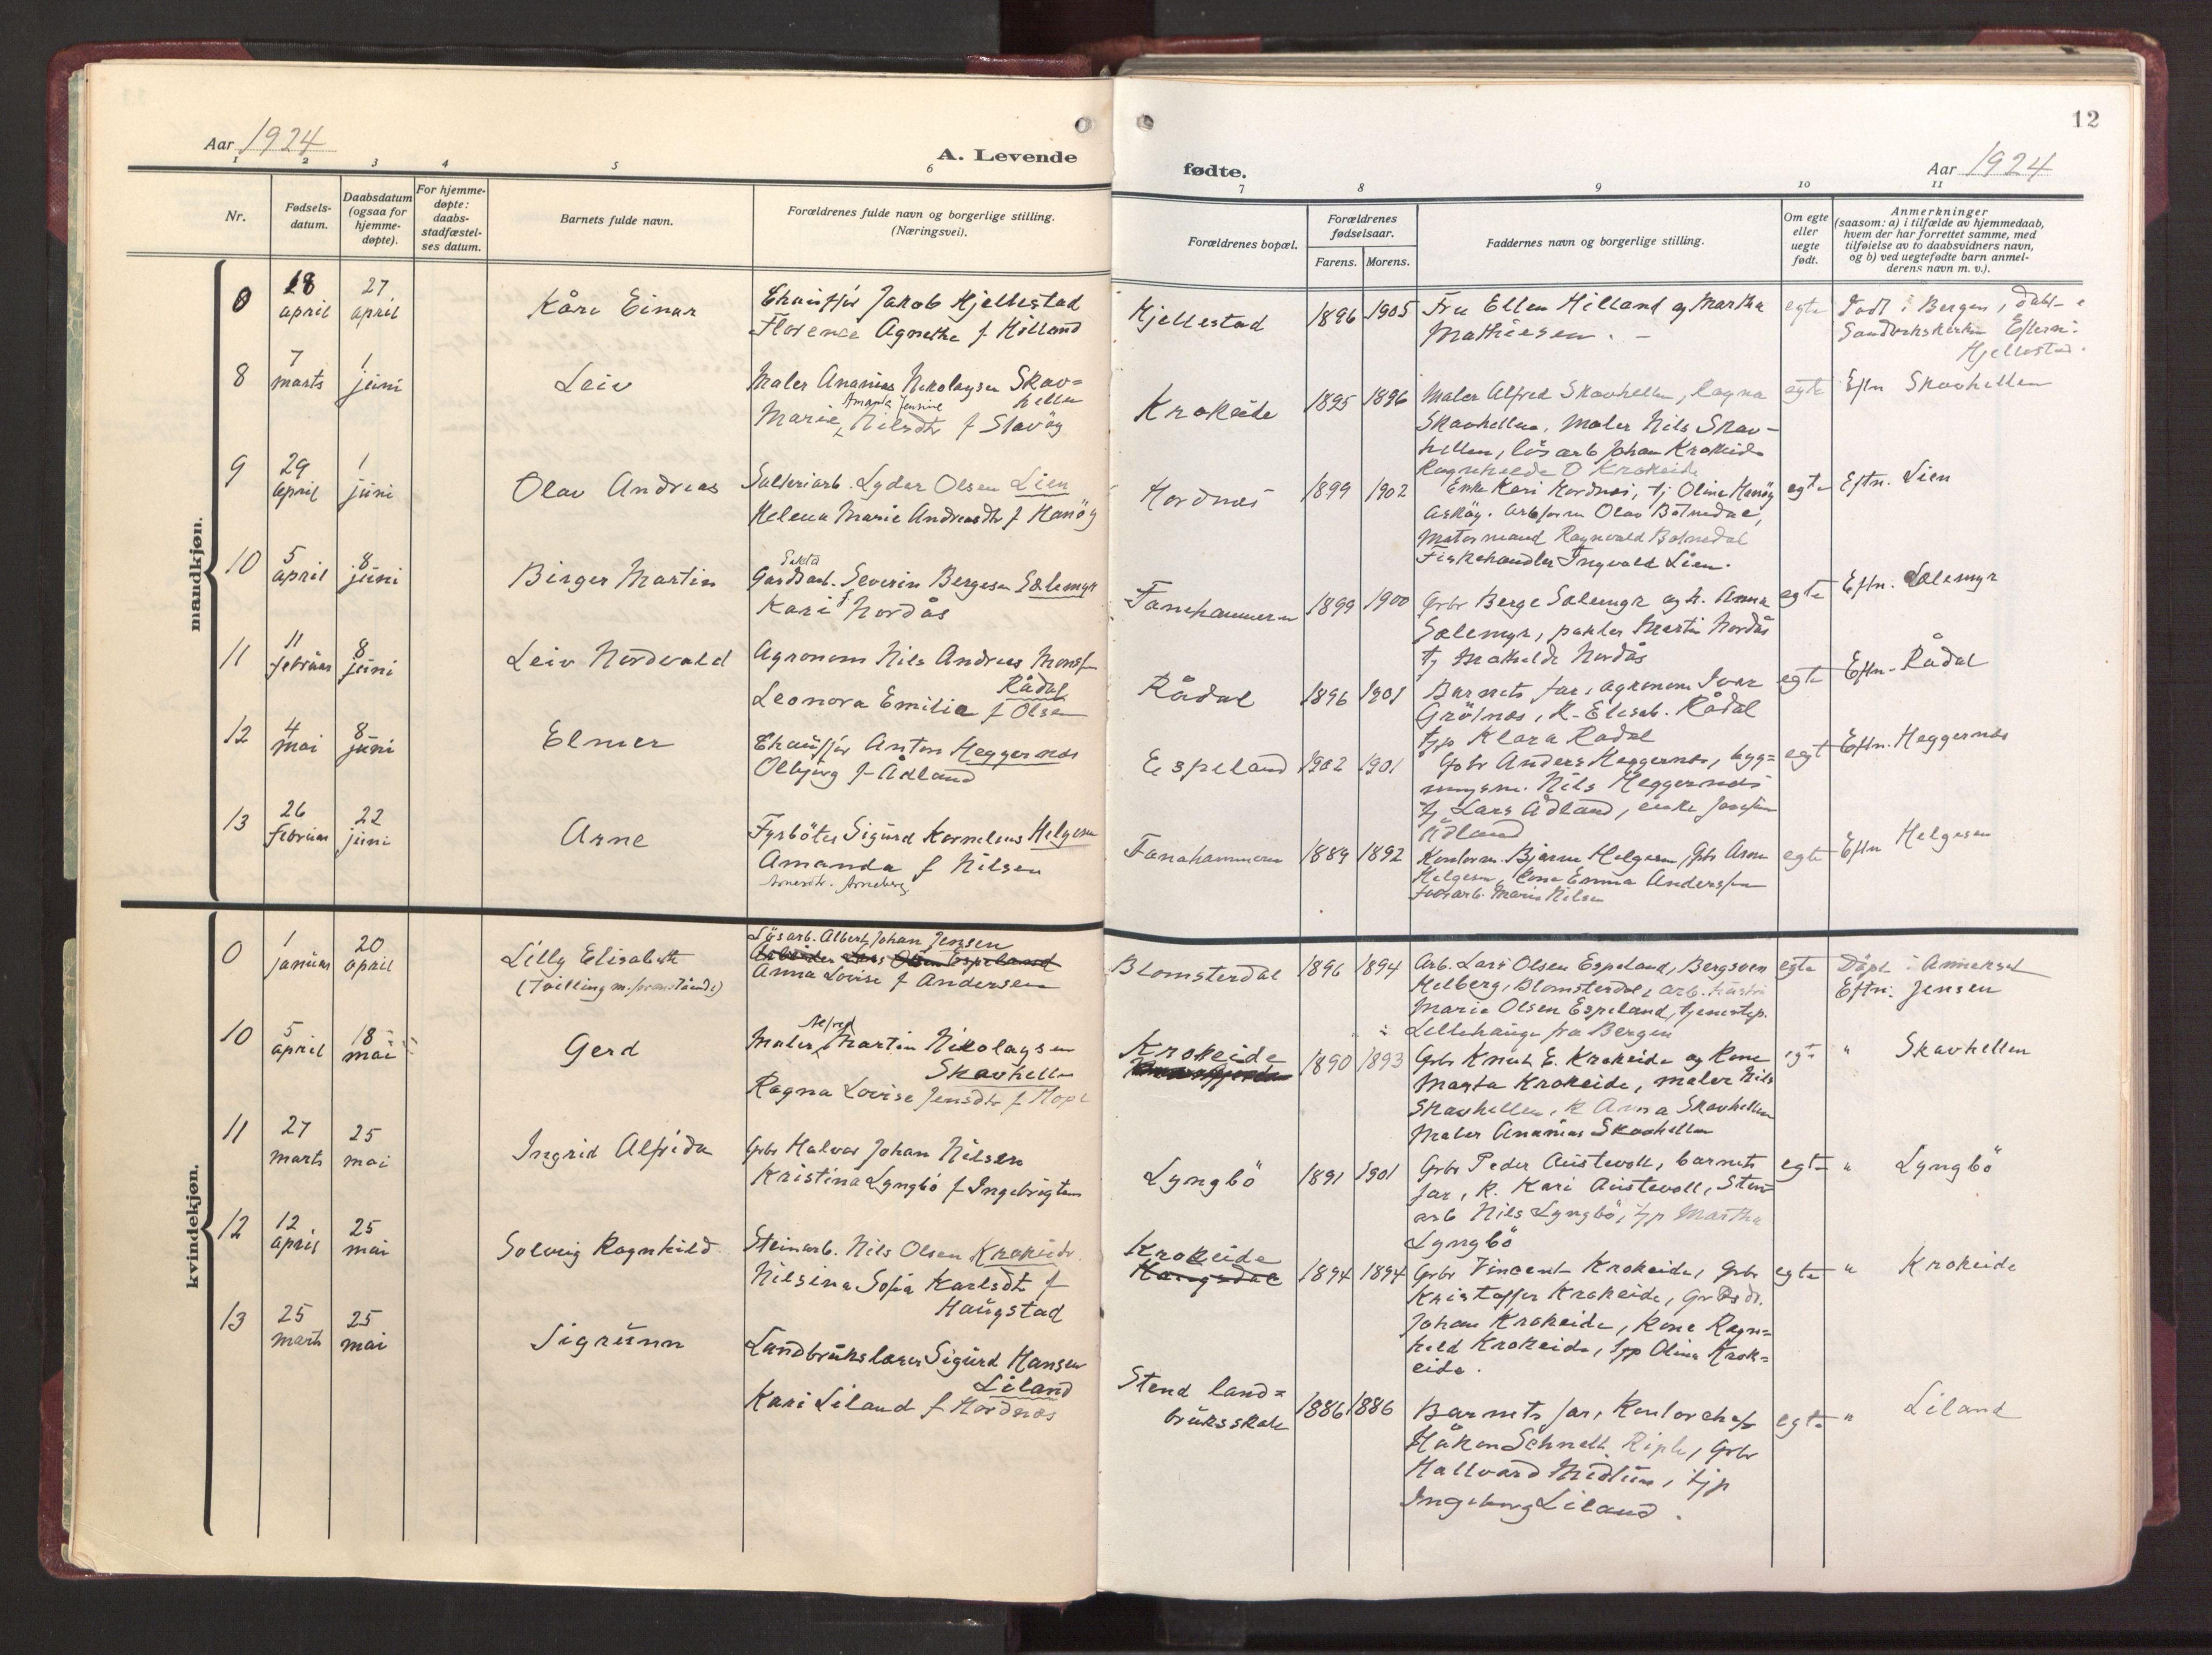 12
Aar 1924
A. Levende
fødte.
Aar 1924
1 2 3 4 5 6
7 8 9 10 11
Nr.
Fødsels-
datum.
Daabsdatum
(ogsaa for
hjemme-
døpte).
For hjemme-
døpte:
daabs-
stadfæstel-
ses datum.
Barnets fulde navn.
Forældrenes fulde navn og borgerlige stilling.
(Næringsvei).
Forældrenes bopæl.
Forældrenes
fødselsaar.
Farens. Morens.
Faddernes navn og borgerlige stilling.
Om egte
eller
uegte
født.
Anmerkninger
(saasom: a) i tilfælde av hjemmedaab,
hvem der har forrettet samme, med
tilføielse av to daabsvidners navn,
og b) ved uegtefødte barn anmel-
derens navn m. v.).
mandkjøn.
0
18
april
27
april
Kåre Einar
Chauffør Jakob Hjellestad
Florence Agnethe f Hilland
Hjellestad
1896 1905
Fru Ellen Hilland og Martha
Mathiesen.
egte
Født i Bergen, døbt
Sandvikskirken Eftern:
Hjellestad.
8
7
marts
1
juni
Leiv
Maler Ananias Nikolaysen Skav=
hellen
Amanda Jensine
Marie Nilsdtr f Stavöy
Krokeide
1895 1896
Maler Alfred Skavhellen, Ragna
Skavhellen, maler Nils Skav-
hellen, lösarb Johan Krokeide
Ragnhilde O Krokeide
egte
Eftn Skavhellen
9
29
april
1
juni
Olav Andreas
Lyder Olsen Lien
Helena Marie Andreasdtr f Hanöy
Hordnes
1899 1902
Enke Kari Hordnes, tj Oline Hanöy
Asköy. Olav Botnedal,
Motormand Ragnvald Botnedal
Fiskehandler Ingvald Lien.
egte
Eftn. Lien
10
5
april
8
juni
Birger Martin
Gardsarb. Severin Bergesen Sælemyr
Kari f Nordås
Fanehammeren
1899 1900
Grbr Berge Sælemyr og h. Anna
Sælemyr, pakker Martin Nordås
tj Makrelde Nordås
egte
Eftn. Sælemyr
11
11
februar
8
juni
Leiv Nordvald
Agronom Nils Andreas Monsf
Rådal
Leonora Emilie f Olsen
Rådal
1896 1901
Barnets far, agronom Ivar
Grötnes, K. Elisab. Rådal
tjp Klara Rådal
egte
Eftn. Rådal
12
4
mai
8
juni
Elmer
Chauffør Anton Heggernes
Olbjörg f Ådland
Espeland
1902 1901
Grbr Anders Heggernes, byg=
ningsm. Nils Heggernes
tj Lars Ådland, enke Josefine
Ådland
egte
Eftn. Heggernes
13
26
februar
22
juni
Arne
Fyrböter Sigurd Kornelius Helgesen
Amanda f Nilsen
Arnesdtr. Arneberg
Fanahammeren
1889 1892
Kontorm. Bjarne Helgesen, Grbr Arne
Helgesen, kone Emma Anderssen
Marie Nilsen
egte
Eftn Helgesen
kvindekjøn.
0
1
januar
20
april
Lilly Elisabeth
(Tvilling m. foranstående)
Lösarb. Albert Johan Jensen
Arbeider Lars Olsen Espeland
Anna Lovise f Andersen
Blomsterdal
1896 1894
Arb. Lars Olsen Espeland, Bergsven
Helberg, Blomsterdal, arb. hustru
Marie Olsen Espeland, tjenestep.
Lillehauge fra Bergen
egte
Döpt i Annekset
Eftn: Jensen
10
5
april
18
mai
Gerd
Alfred
Maler Martin Nikolaysen
Skavhellen
Ragna Lovise Jensdtr f Hope
Krokeide
1890 1893
Grbr Knut E. Krokeide og Kone
Marta Krokeide, maler Nils
Skavhellen, K Anna Skavhellen
Maler Ananias Skavhellen
egte
" Skavhellen
11
27
marts
25
mai
Ingrid Alfrida
Grbr Halvor Johan Nilsen
Kristina Lyngbö f Ingebrigtsen
Lyngbö
1891 1901
Grbr Peder Austevoll, barnets
far, K. Kari Austevoll, Sten=
arb Nils Lyngbö, tjp Martha
Lyngbö
egte
" Lyngbö
12
12
april
25
mai
Solveig Ragnhild
Steinarb. Nils Olsen Krokeide
Nilsina Sofia Karlsdtr f
Haugstad
Krokeide
1894 1894
Grbr Vincent Krokeide, Grbr
Kristoffer Krokeide,
Johan Krokeide, Kone Ragn=
hild Krokeide, tjp Olina Krok=
eide.
egte
" Krokeide
13
25
marts
25
mai
Sigrunn
Landbrukslærer Sigurd Hansen
Liland
Kari Liland f Hordnes
Stend land=
bruksskole
1886 1886
Barnets far, Kontorchef
Håkon Schnelt Riple, Grbr
Hallvard Midtun, tjp
Ingeborg Liland.
egte
" Liland